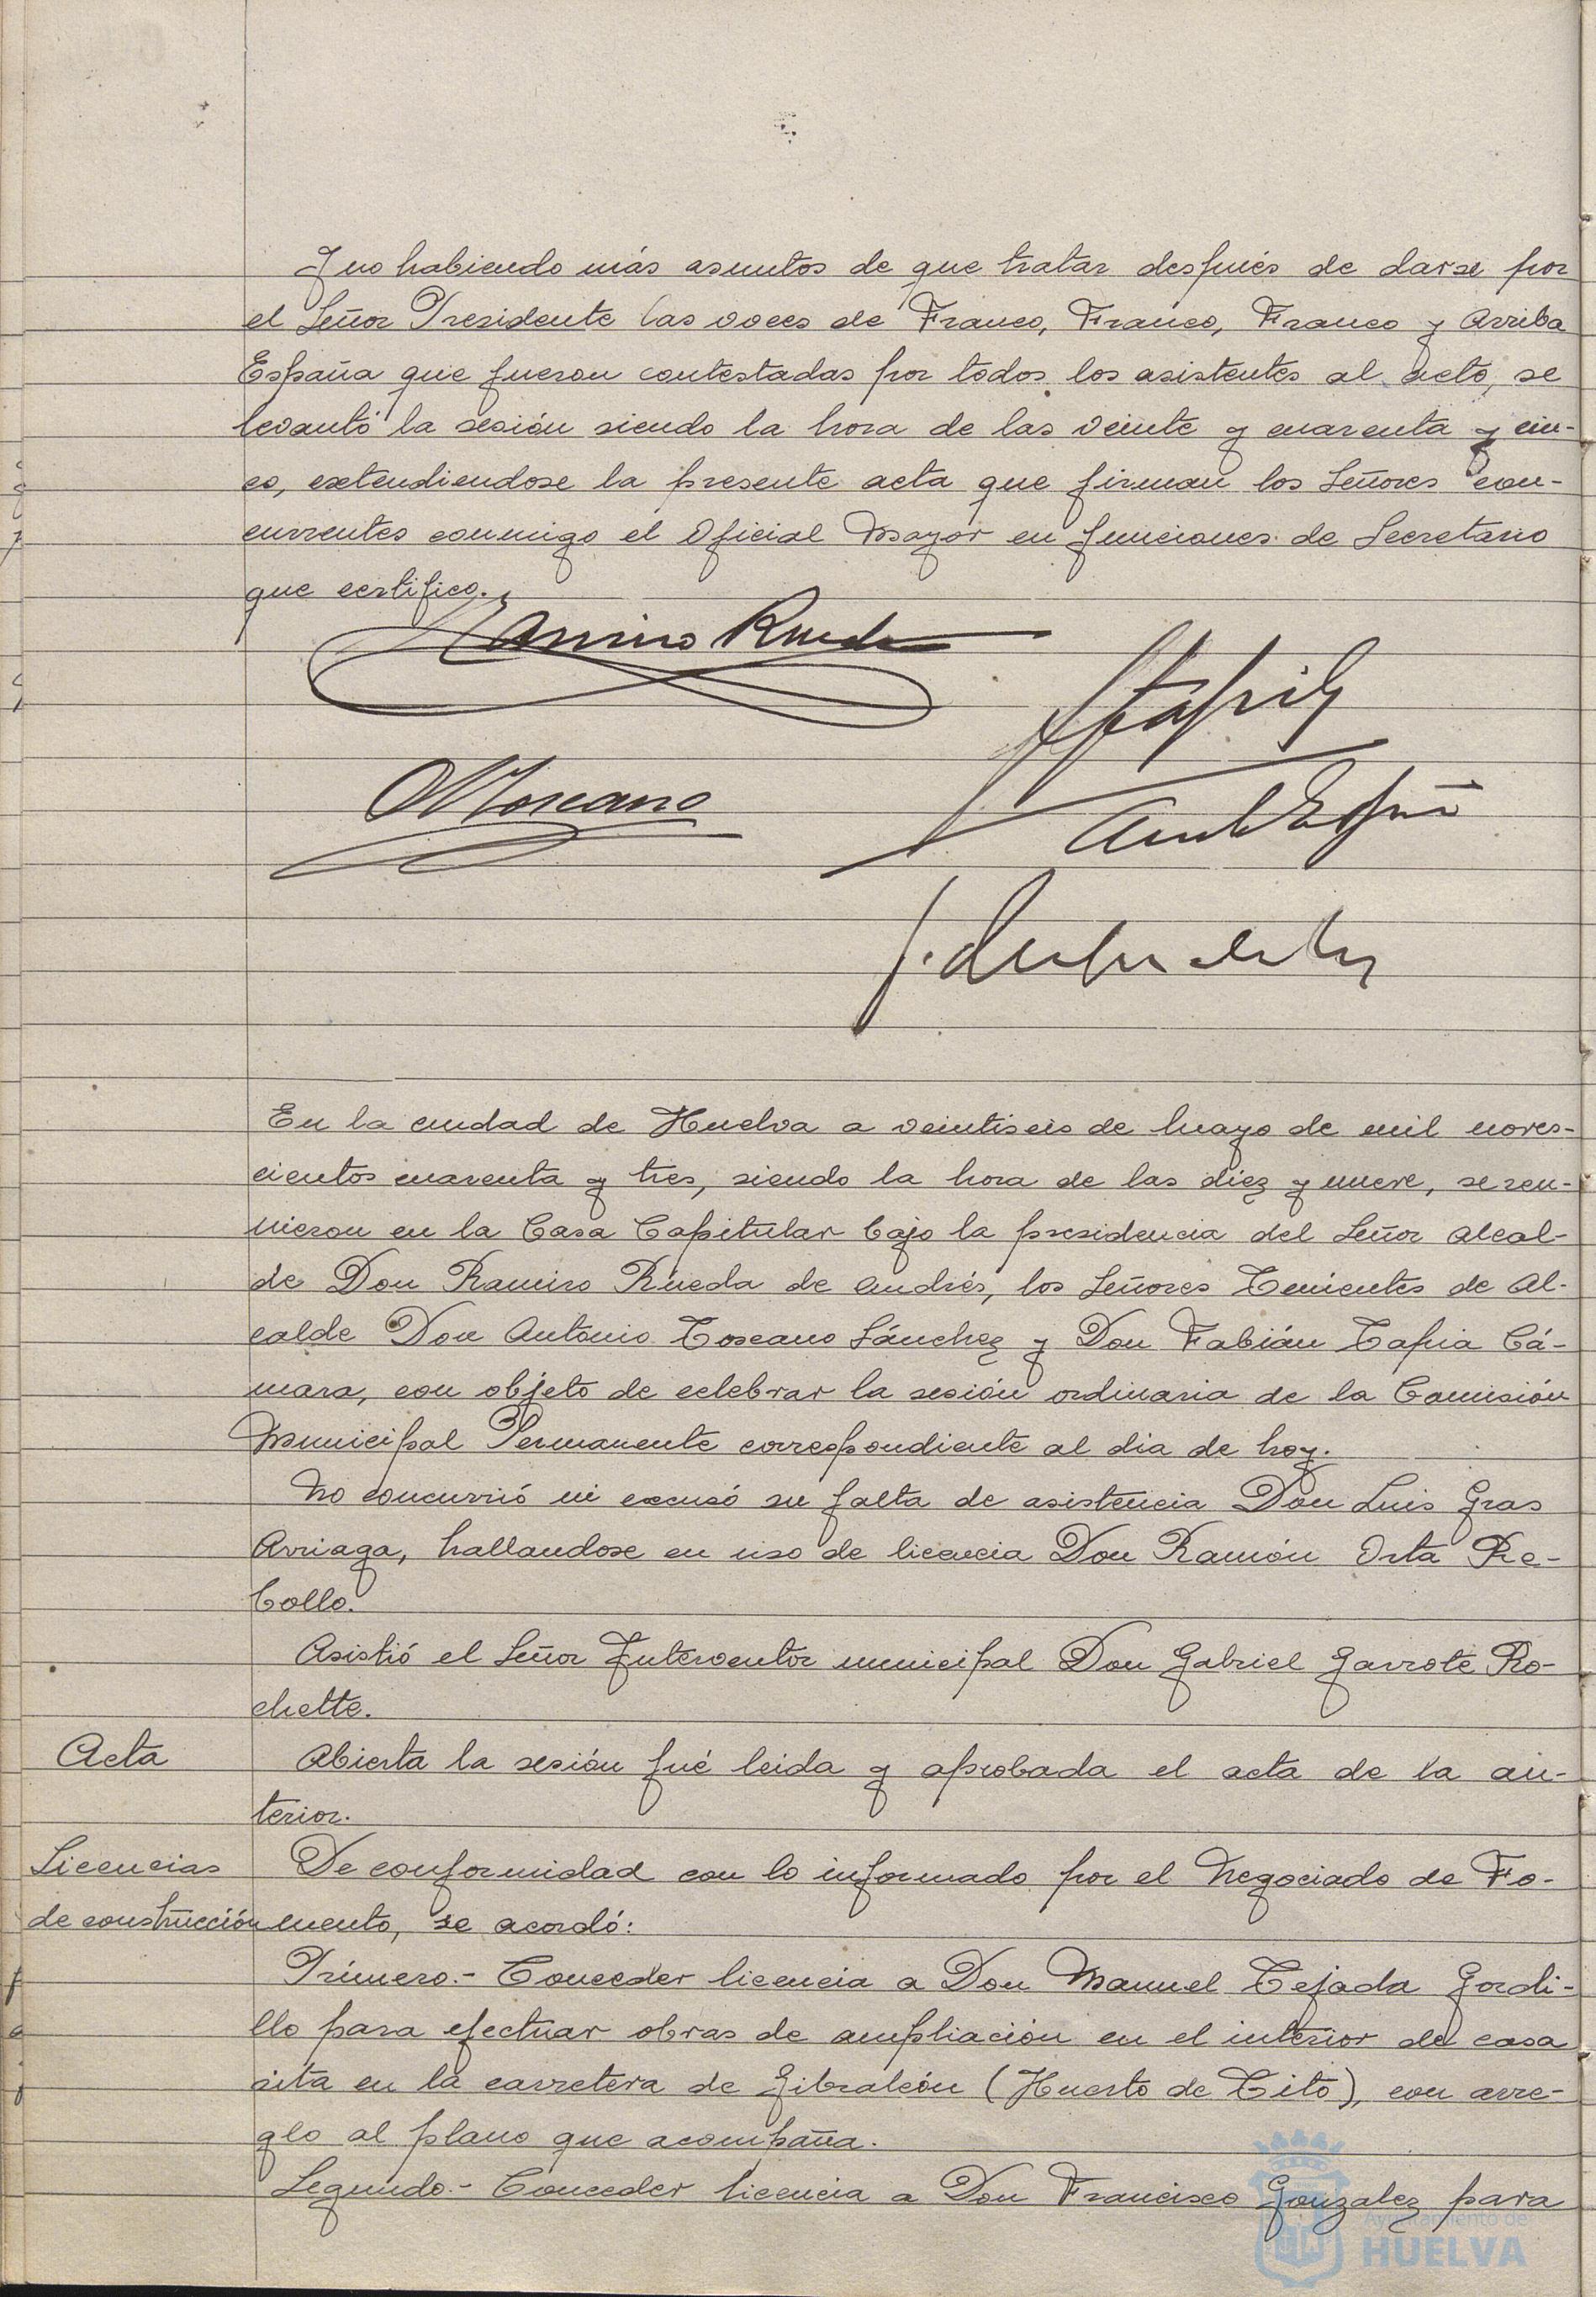 Y no habiendo más asuntos de que tratar después de darse por
el Señor Presidente las voces de Franco, Franco, Franco y Arriba
España que fueron contestadas por todos los asistentes al acto, se
levantó la sesión siendo la hora de las veinte y cuarenta y cin-
co, extendiendose la presente acta que firman los Señores con-
currentes conmigo el Oficial Mayor en funciones de Secretario
que certifico.
Ramiro Rueda
FTapia
A Toscano
En la ciudad de Huelva a veintiseis de mayo de mil noves-
cientos cuarenta y tres, siendo la hora de las diez y nueve, se reu-
nieron en la Casa Capitular bajo la presidencia del Señor Alcal-
de Don Ramiro Rueda de Andrés, los Señores Tenientes de Al-
calde Don Antonio Toscano Sánchez y Don Fabián Tapia Cá-
mara, con objeto de celebrar la sesión ordinaria de la Comisión
Municipal Permanente correspondiente al dia de hoy.
No concurrió ni excusó su falta de asistencia Don Luis Gras
Arriaga, hallandose en uso de licencia Don Ramón Orta Re-
bollo.
Asistió el Señor Interventor municipal Don Gabriel Garrote Ro-
chette.
Acta
Abierta la sesión fué leida y aprobada el acta de la an-
terior.
Licencias
de construcción
De conformidad con lo informado por el Negociado de Fo-
mento, se acordó:
Primero.- Conceder licencia a Don Manuel Tejada Gordi-
llo para efectuar obras de ampliación en el interior de casa
sita en la carretera de Gibraleón (Huerto de Tito), con arre-
glo al plano que acompaña.
Segundo.- Conceder licencia a Don Francisco Gonzalez para
Ayuntamiento de
HUELVA